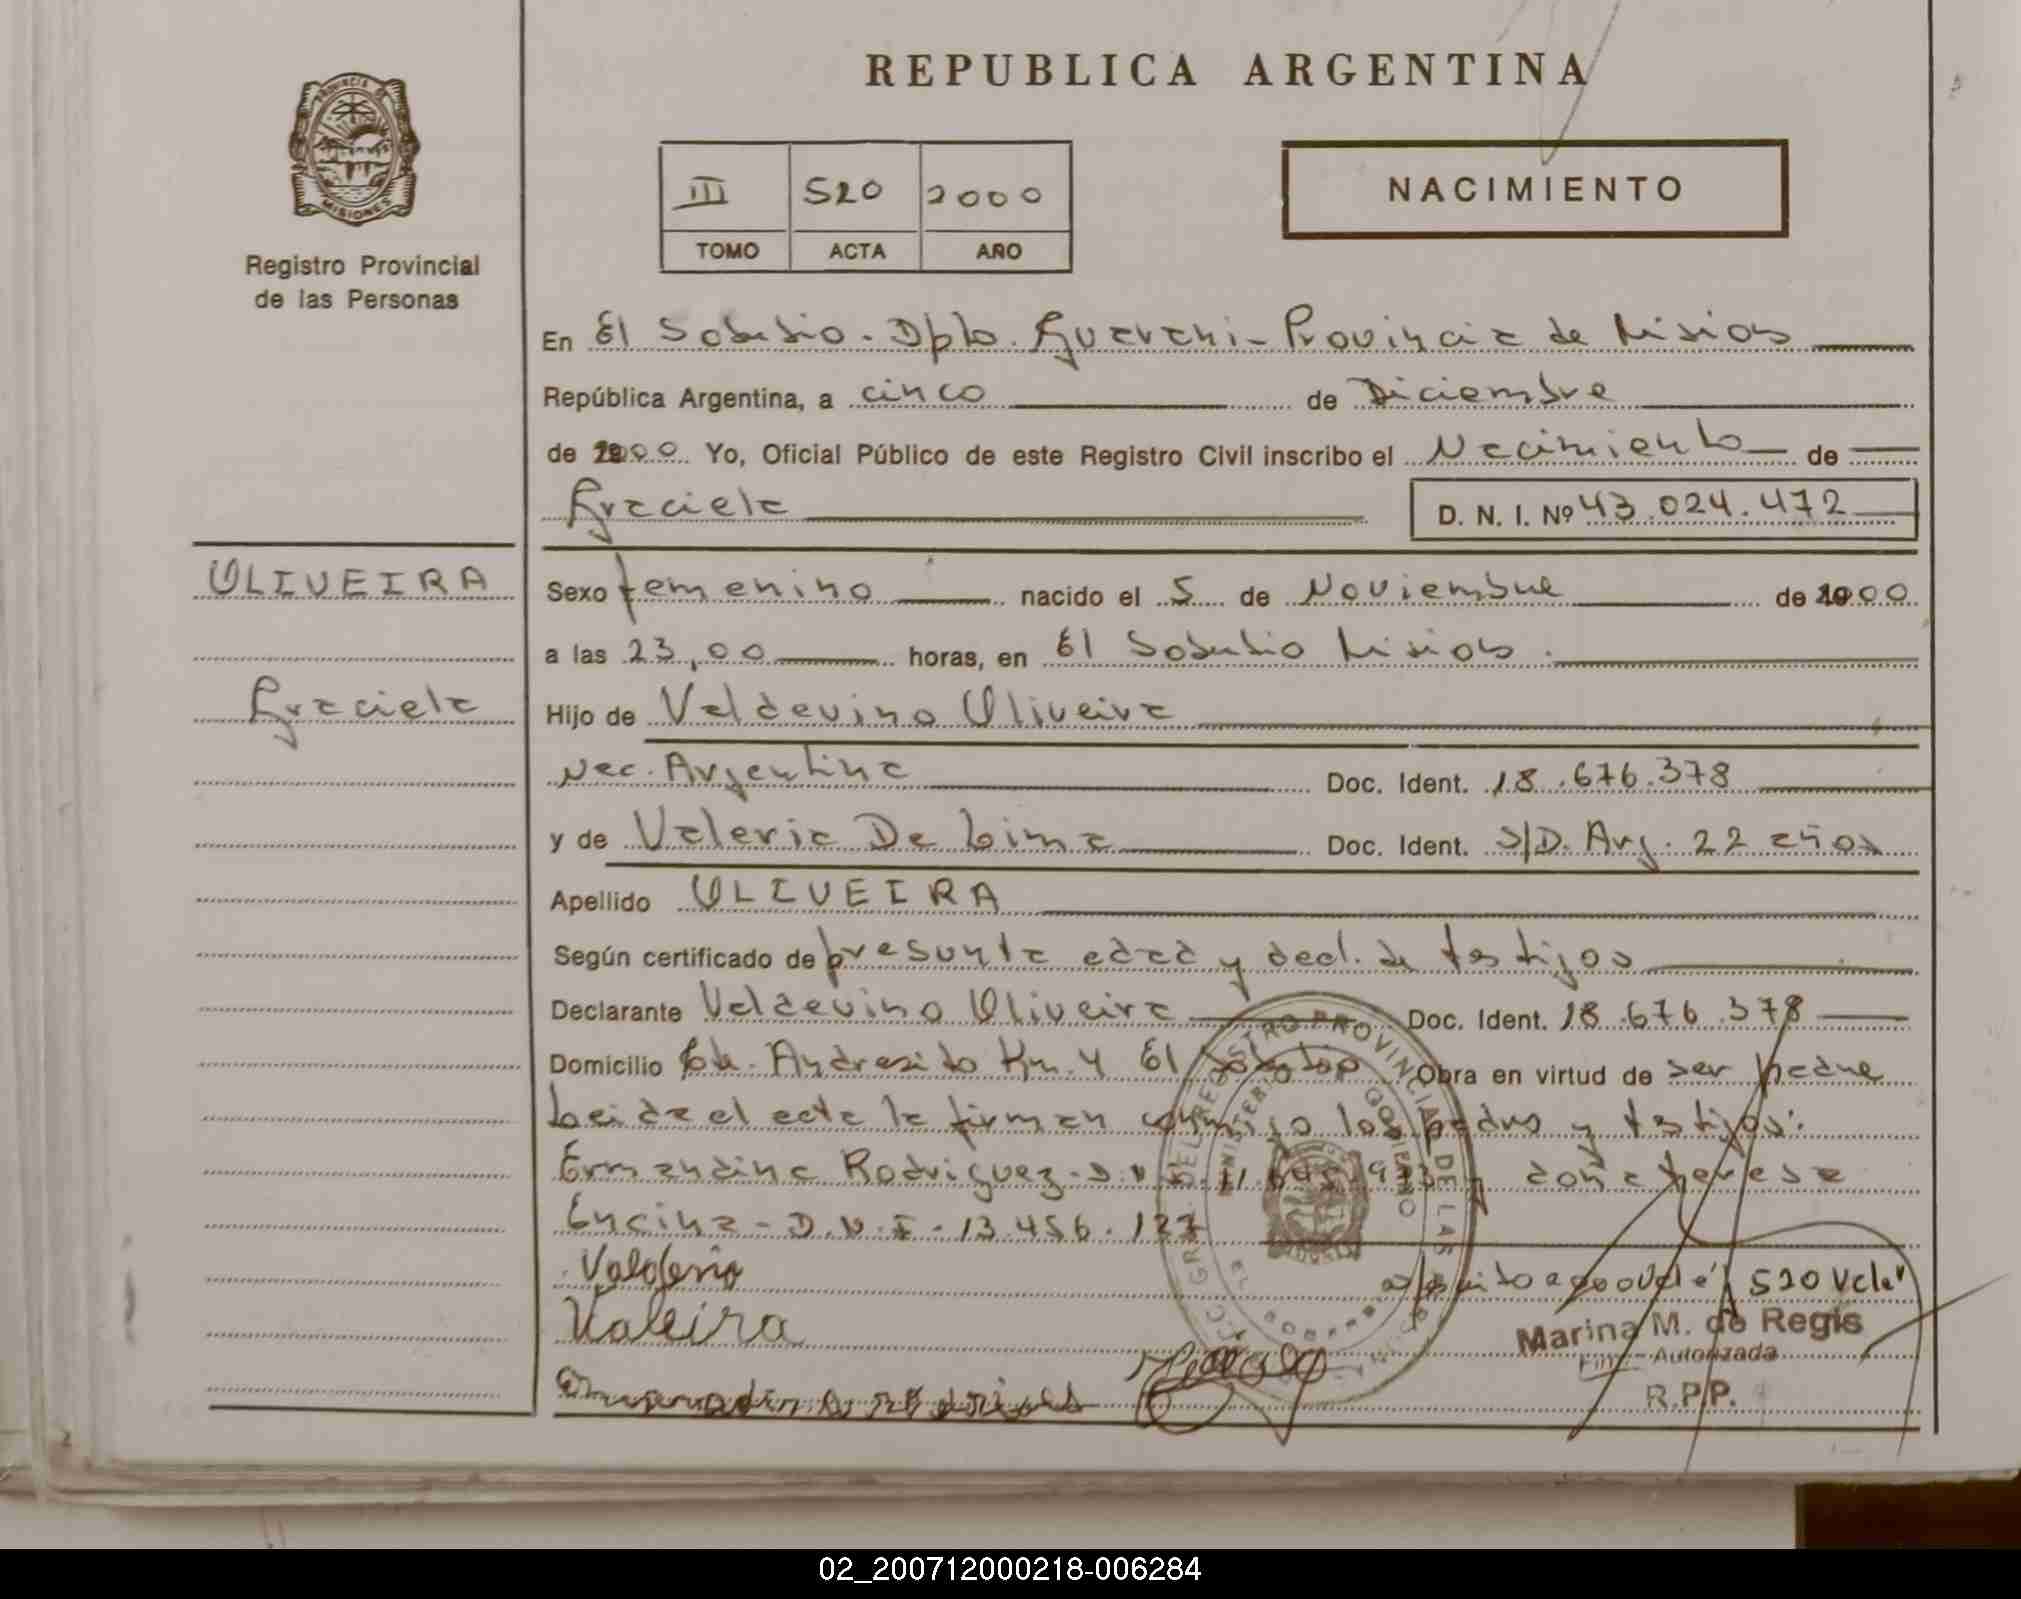 REPUBLICA ARGENTINA
PROVINCIA DE
MISIONES
Registro Provincial
de las Personas
III 520 2000
TOMO ACTA AÑO
NACIMIENTO
En El Soberbio - Dpto. Guarani - Provincia de Misions
República Argentina, a cinco de Diciembre
de 2000 Yo, Oficial Público de este Registro Civil inscribo el Nacimiento de
Graciela D. N. I. Nº 43.024.472
OLIVEIRA
Graciela
Sexo femenino nacido el 5 de Noviembre de 2000
a las 23,00 horas, en El Soberbio Misions.
Hijo de Valdevino Oliveira
Nac. Argentina Doc. Ident. 18.676.378
y de Valeria De Lima Doc. Ident. S/D. Arg. 22 años
Apellido OLIVEIRA
Según certificado de presunta edad y decl. de testigos
Declarante Valdevino Oliveira Doc. Ident. 18.676.378
Domicilio Andresito Km. 4 El Soberbio Obra en virtud de ser padre
Leida el acta la firman conmigo los padres y testigos:
Ermandina Rodriguez - D.N.I. y doña
Encina - D.N.I. 13.456.127
520 Vale
Marina M. de Regis
Autorizada
R.P.P.
02_200712000218-006284